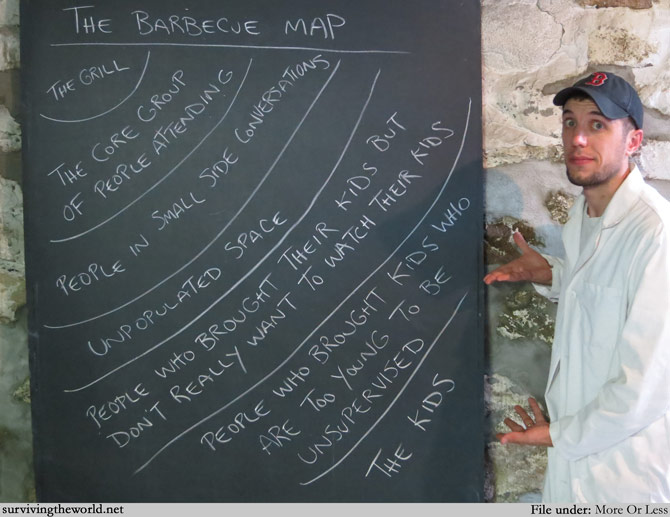 THE BARBECUE MAP
THE GRILL
THE CORE GROUP
OF PEOPLE ATTENDING
PEOPLE IN SMALL SIDE CONVERSATIONS
UNPOPULATED SPACE
PEOPLE WHO BROUGHT THEIR KIDS BUT
DON'T REALLY WANT TO WATCH THEIR KIDS
PEOPLE WHO BROUGHT KIDS WHO
ARE TOO YOUNG TO BE
UNSUPERVISED
THE KIDS
B
survivingtheworld.net
File under: More Or Less